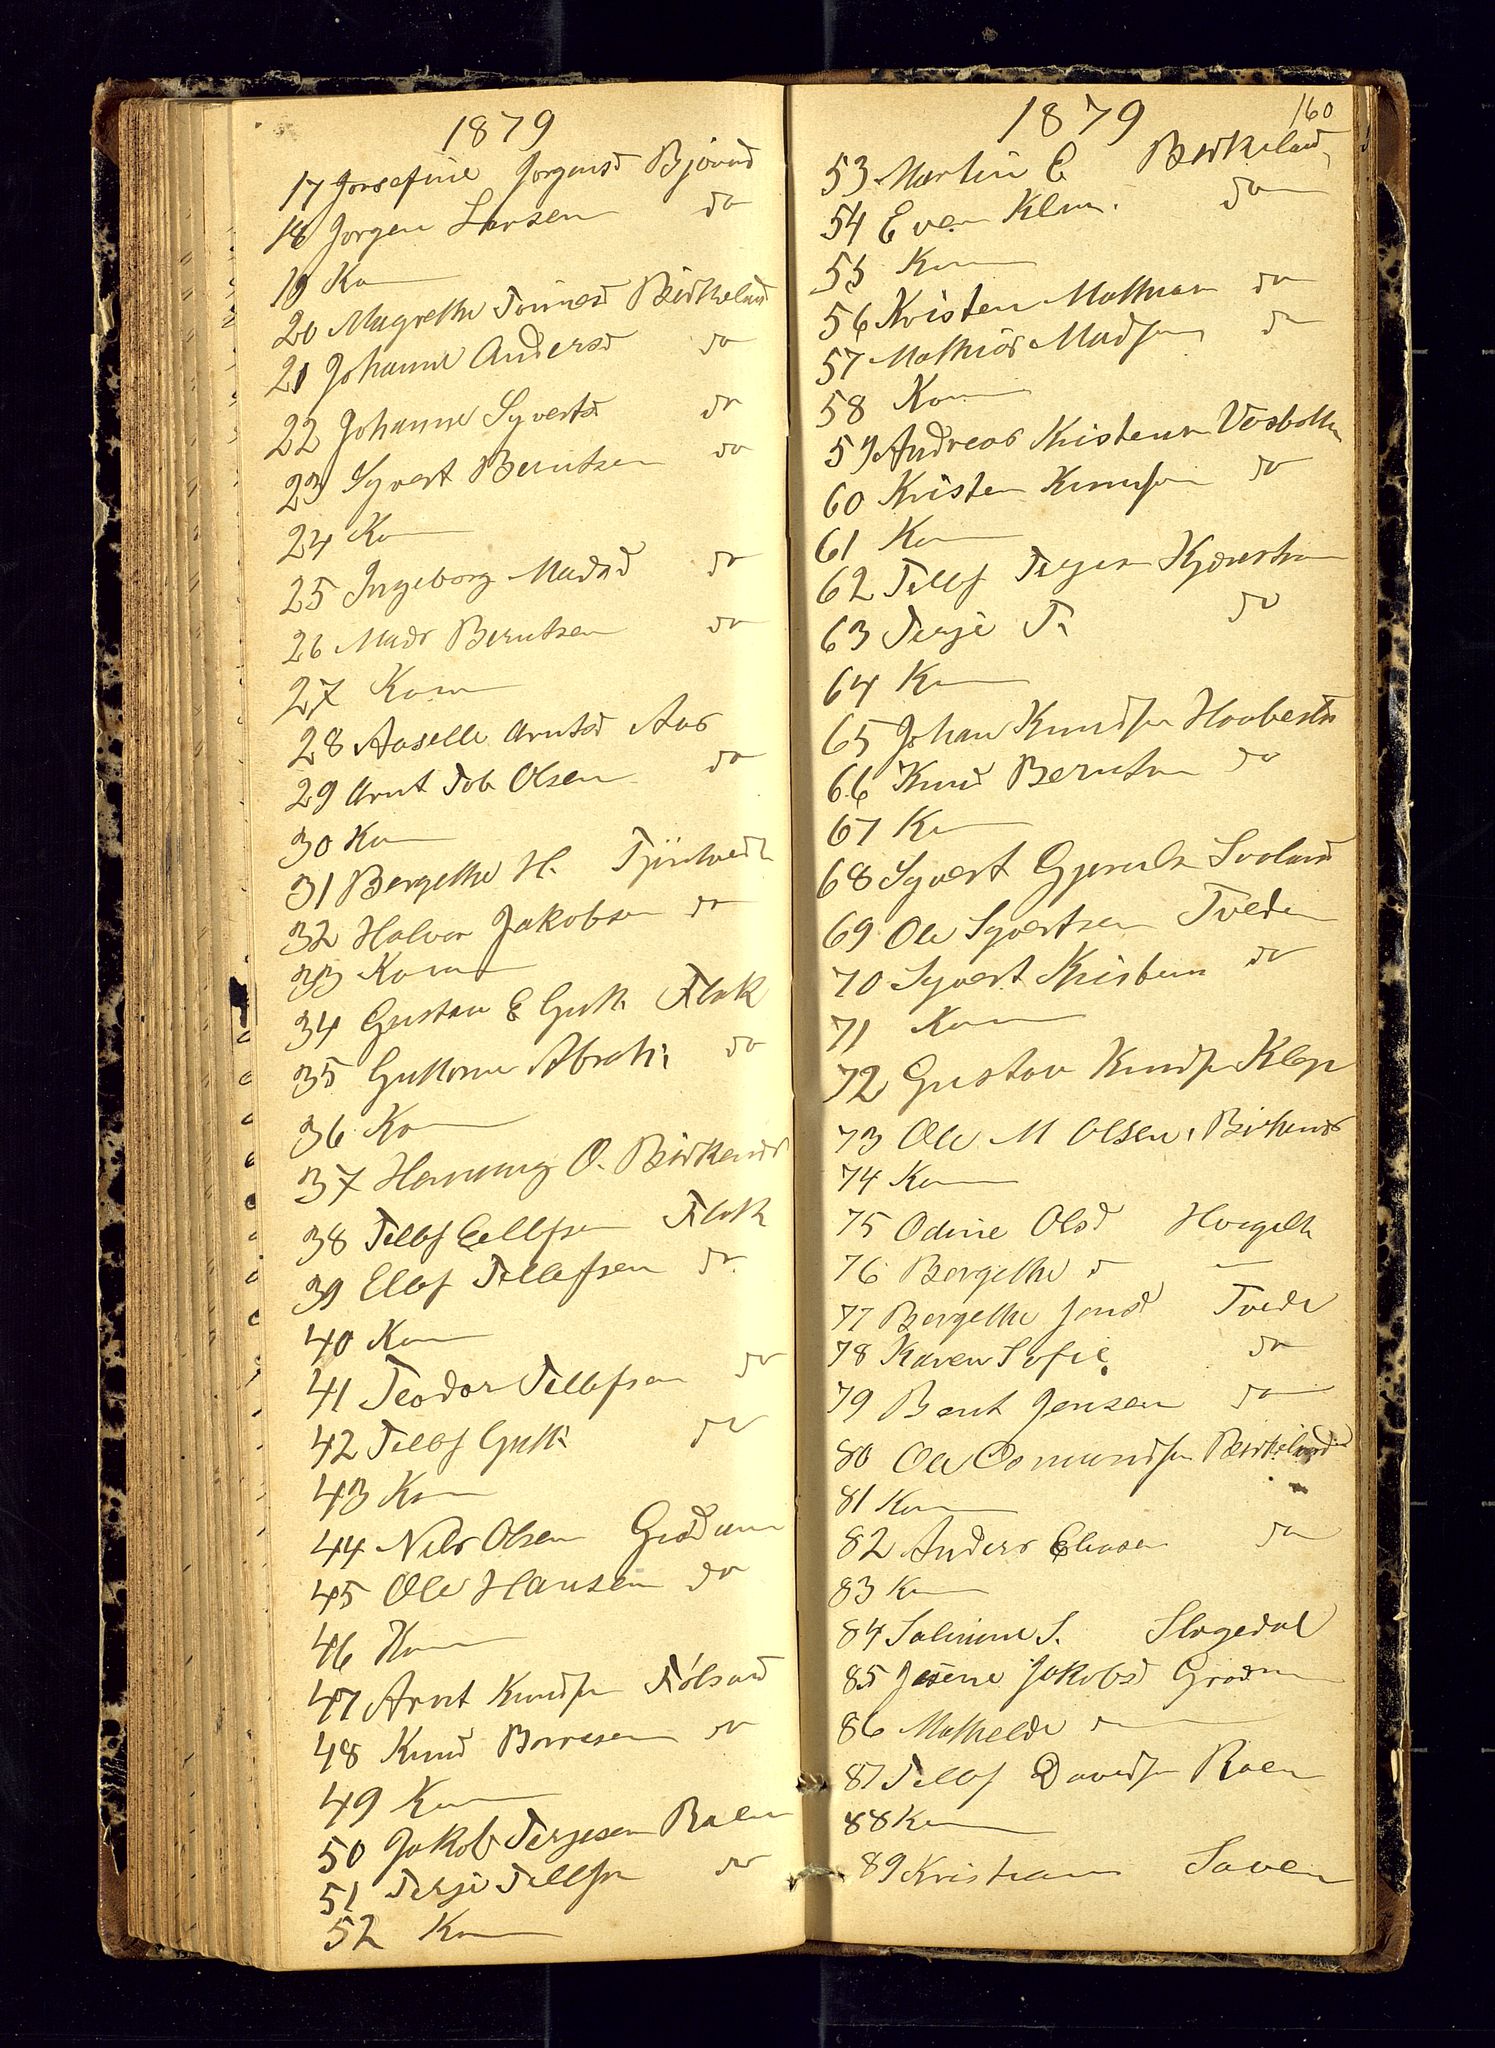 1879
17 Josefine Jörgensd Bjövnd
18 Jörgen Larsen do
19 Kon
20 Magrethe Tönnesd Birkeland
21 Johanne Andersd do
22 Johanne Syvertsd do
23 Syvert Berntsen do
24 Kon
25 Ingeborg Madsd do
26 Mads Berntsen do
27 Kone
28 Aaselle Arntsd Aas
29 Arnt Tob Olsen do
30 Kon
31 Bergethe H.
32 Halvor Jakobsen do
33 Kone
34 Gustav E Gutt. Flak
35 Guttorm Abrah: do
36 Kon
37 Henning O. Birkenes
38 Tellef Ellefsen Flak
39 Ellef Tellefsen do
40 Kon
41 Teodor Tellefsen do
42 Tellef Gutt: do
43 Kon
44 Nils Olsen Grödum
45 Ole Hansen do
46 Kon
47 Arnt Knudsen Fölsand
48 Knud Borresen do
49 Kon
50 Jakob Terjesen Raen
51 Terje Tellefsn do
52 Kon
1879 160
53 Martin E Birkeland
54 Even Klm. do
55 Kon
56 Kristen Mathias do
57 Mathias Madsen do
58 Kon
59 Andreas Kristensn
60 Kristen Knudsen do
61 Kon
62 Tellef Terjesn
63 Terje T. do
64 Kon
65 Johan Knudsen
66 Knud Berntsn do
67 Kon
68 Syvert Gjeruls Svaland
69 Ole Syvertsen Tveden
70 Syvert Kristens do
71 Kon
72 Gustav Knudsn Klep
73 Ole M Olsen, Birkenes
74 Kon
75 Odine Olsd
76 Bergethe d —
77 Bergethe Jensd Tvede
78 Karen Sofie do
79 Bent Jensen do
80 Ole Osmundsen Birkeland
81 Kon
82 Anders Eliasen do
83 Kon
84 Saline S. Slogedal
85 Jakobsd Grødum
86 Mathilde d
87 Tellef Davidsn Raen
88 Kon
89 Kristian Saven